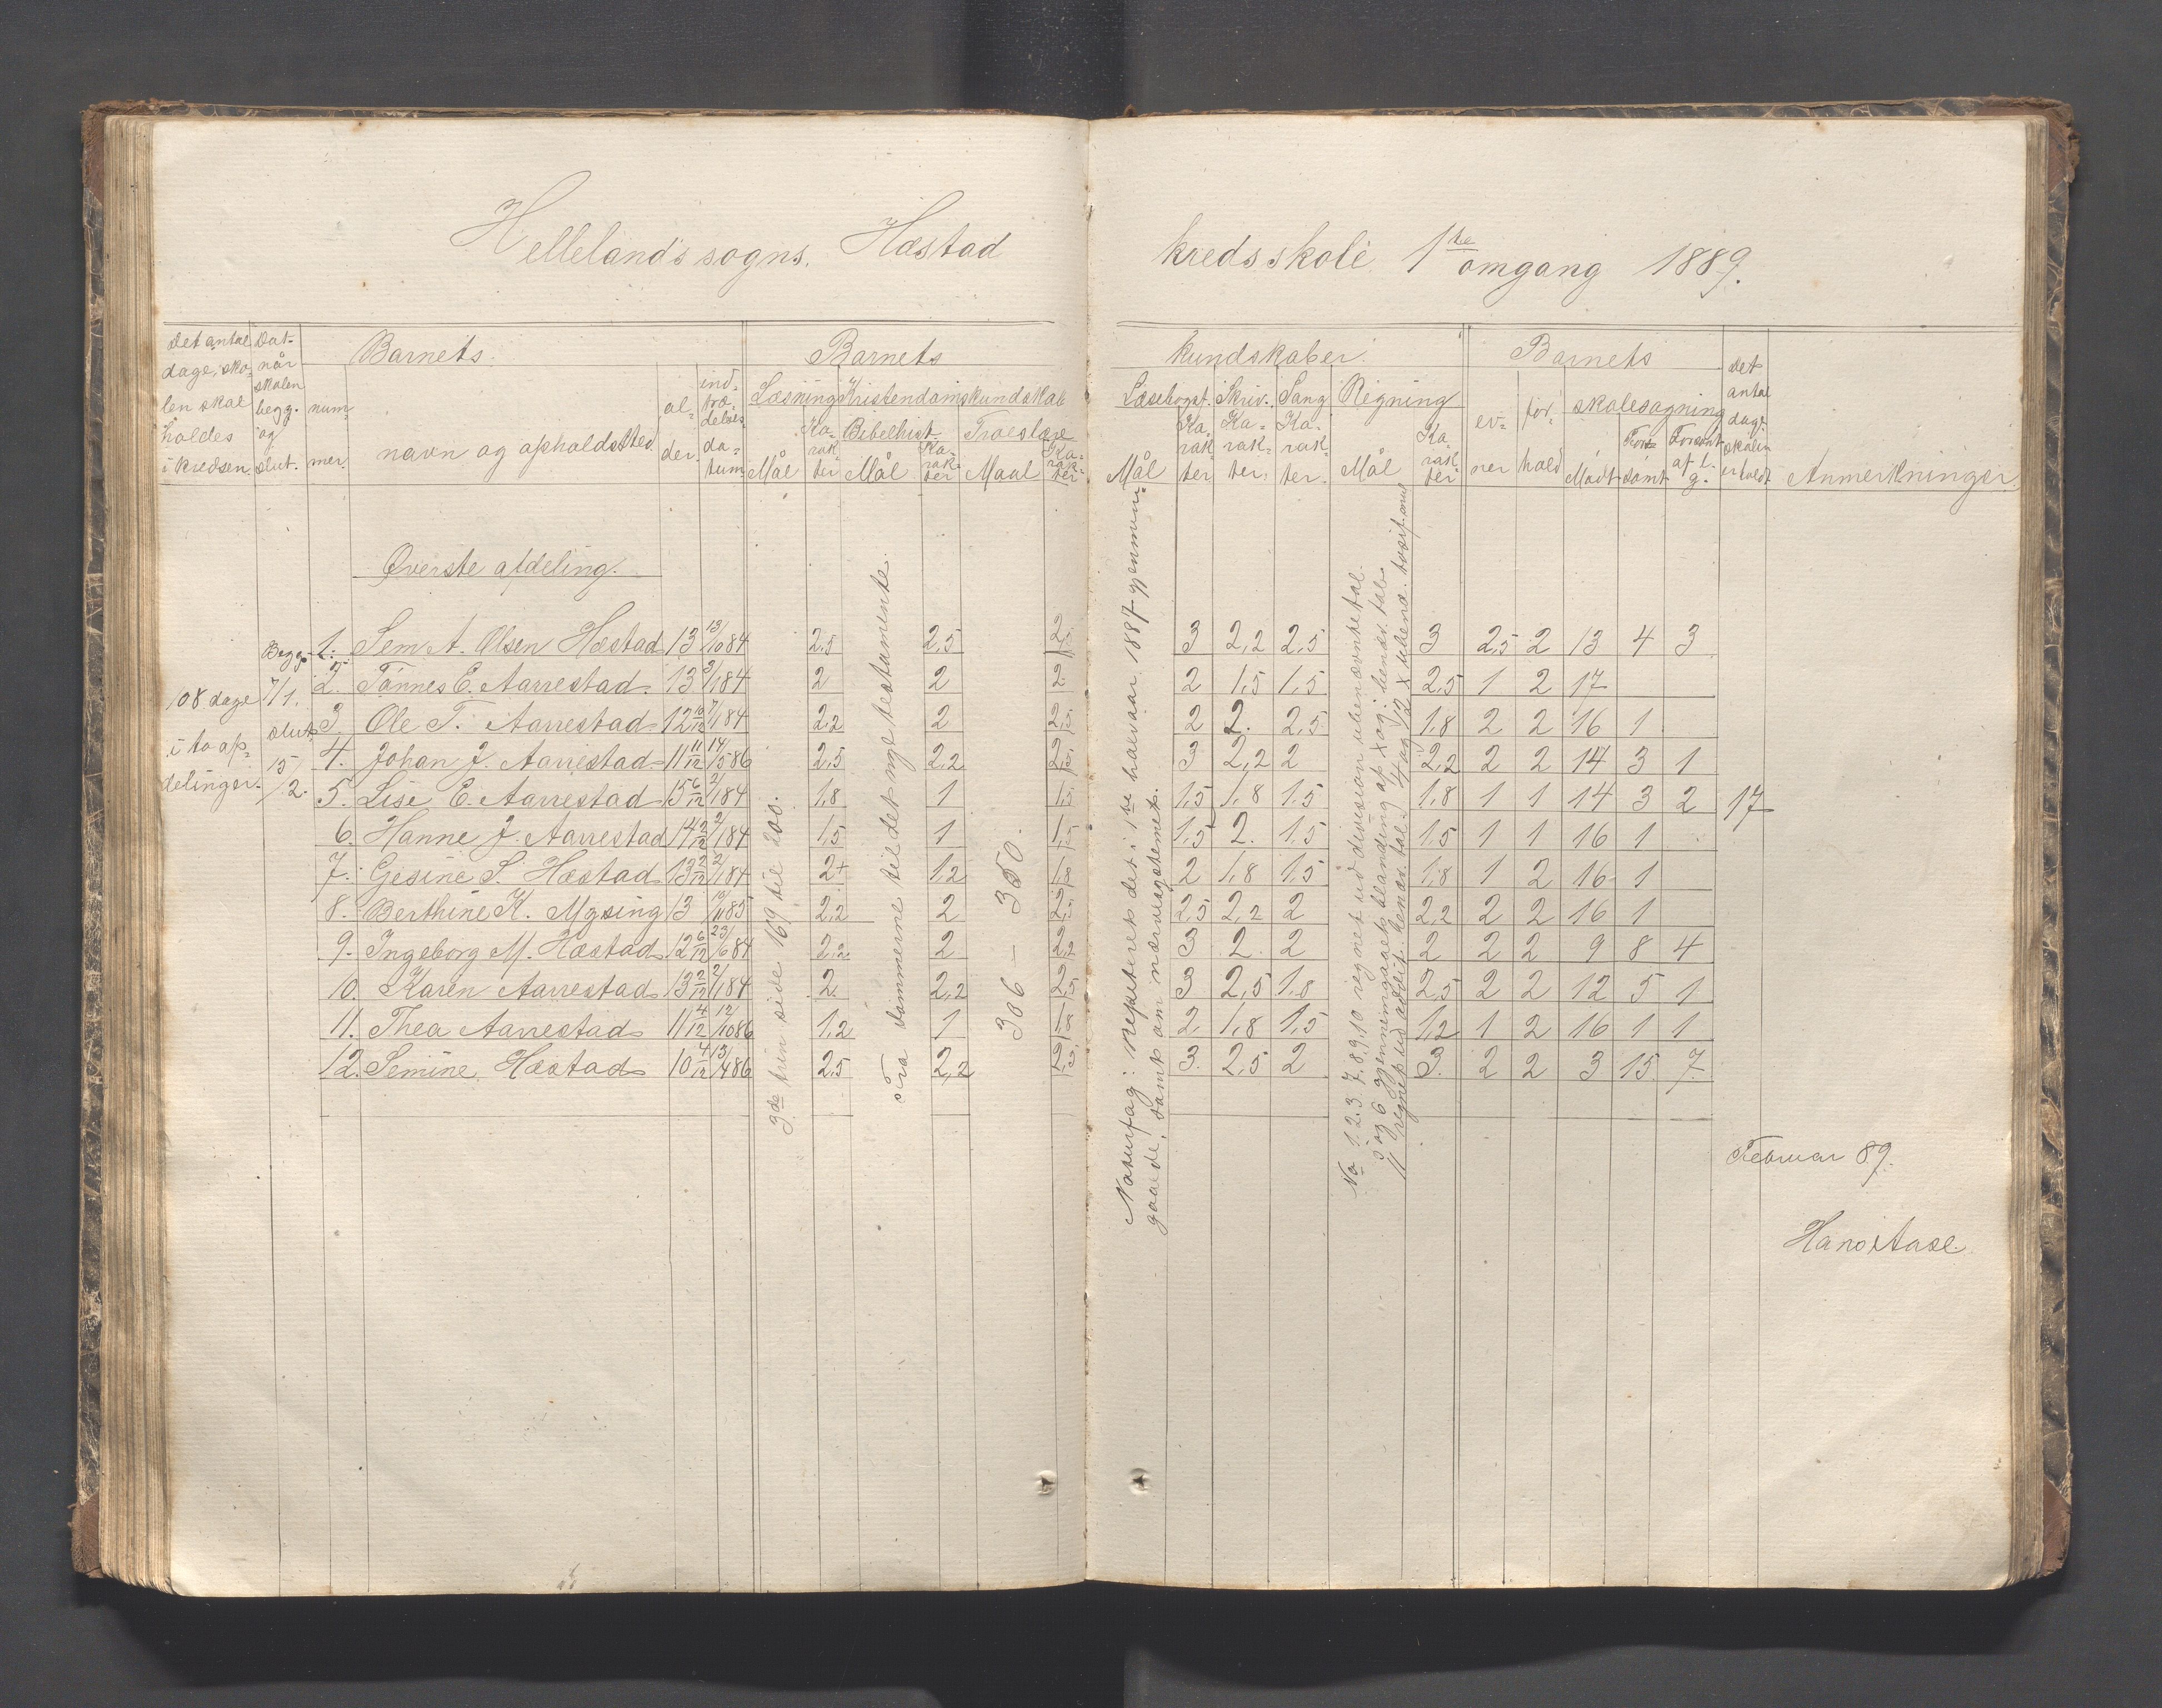 Hellelands sogns. Hæstad kredsskole 1ste omgang 1889.
Det antal dage, skolen skal holdes i kredsen.
Dat. når skolen beg. og slut.
Barnets.
nummer.
navn og opholdssted
alder.
indtrædelses datum.
Barnets kundskaber.
Læsning
Mål
Karakter
Kristendomskundskab
Bibelhist.
Mål
Karakter
Troeslære
Maal
Karakter
Læsebogst.
Mål
Karakter
Skriv.
Karakter.
Sang
Karakter.
Regning
Mål
Karakter
Barnets
evner
forhold
skolesøgning
Mødt
Forsømt
Forsømt af l. g.
det antal dage skolen er holdt
Anmerkninger.
Øverste afdeling.
108 dage i to afdelinger.
Beg. 7/1. slut. 15/2.
1. Sem A. Olsen Hæstad 13 13/10 84 2,5 2,5 2,5 3 2,2 2,5 3 2,5 2 13 4 3
2. Tønnes E. Aarrestad. 13 3/1 84 2 2 2 2 1,5 1,5 2,5 1 2 17
3. Ole T. Aarrestad 12 10/12 7/1 84 2,2 2 2,5 2 2. 2,5 1,8 2 2 16 1
4. Johan J. Aarrestad 11 11/12 14/5 86 2,5 2,2 2,5 3 2,2 2 2,2 2 2 14 3 1
5. Lise E. Aarrestad 15 6/12 2/1 84 1,8 1 1,5 1,5 1,8 1,5 1,8 1 1 14 3 2 17
6. Hanne J. Aarrestad 14 2/12 2/1 84 1,5 1 1,5 1,5 2. 1,5 1,5 1 1 16 1
7. Gesine S. Hæstad 13 2/12 2/1 84 2+ 1,2 1,8 2 1,8 1,5 1,8 1 2 16 1
8. Berthine K. Mysing 13 10/11 85 2,2 2 2,5 2,5 2,2 2 2,2 2 2 16 1
9. Ingeborg M. Hæstad 12 6/12 23/6 84 2,2 2 2,2 3 2. 2 2 2 2 9 8 4
10. Karen Aarrestad 13 2/12 2/1 84 2. 2,2 2,5 3 2,5 1,8 2,5 2 2 12 5 1
11. Thea Aarrestad 11 4/12 12/10 86 1,2 1 2. 1,8 1,5 1,2 1 2 16 1 1
12. Semine Hæstad 10 4/12 13/4 86 2,5 2,2 2,5 3. 2,5 2 3. 2 2 3 15 7.
3de trin side 169 til 200.
Fra dommerne til det nye testamente.
306 – 350.
Naturfag: repeteret det i 1ste halvaar 1887 gjennemgaaede, samt om nervesystemet.
No 1. 2. 3. 7. 8. 9. 10 regnet ud division ubenævnte tal.
5 og 6 gjennemgaaet blanding af x og : benæv. tal.
11 regnet ud addit. benæv. tal. 4 og 12 x ubenæ.
Februar 89.
Hans Aase.